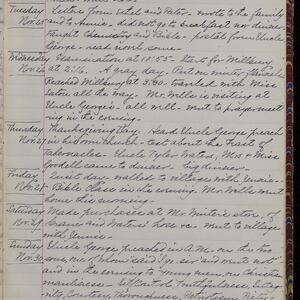 Tuesday Letters from Ethel and Pater - wrote to the family
Nov. 25 and to Annie - did not go to breakfast nor dinner
taught Chemistry and Bible - postal from Uncle
George - read novel some.
Wednesday Examination at 10:55 - Start for Millbury
Nov. 26 at 2:16. A gray day. Put on winter flannels
Reached Millbury at 3:40. traveled with Miss
Eaton all the way. Mr. Willis is visiting at
Uncle George's. all well. went to prayer meet-
ing in the evening.
Thursday Thanksgiving Day. Heard Uncle George preach
Nov. 27 in his own church - text about the Feast of
Tabernacles. Uncle Tyler Waters, Mr. + Miss
came to dinner. big dinner.
Friday Quiet day - walked to village with Annie.
Nov. 28 Bible Class in the evening. Mr. Willis went
home this morning.
Saturday Made purchases at Mr. store,
Nov. 29 and Waters' love &c. went to village
with Annie.
Sunday Uncle George preached in A.M. on the two
Nov. 30 sons, one of whom said I go sir and went not
and in the evening to young men, on Christian
manliness - Self control, Truthfulness, integ-
rity, Courtesy, Thoroughness, Patriotism